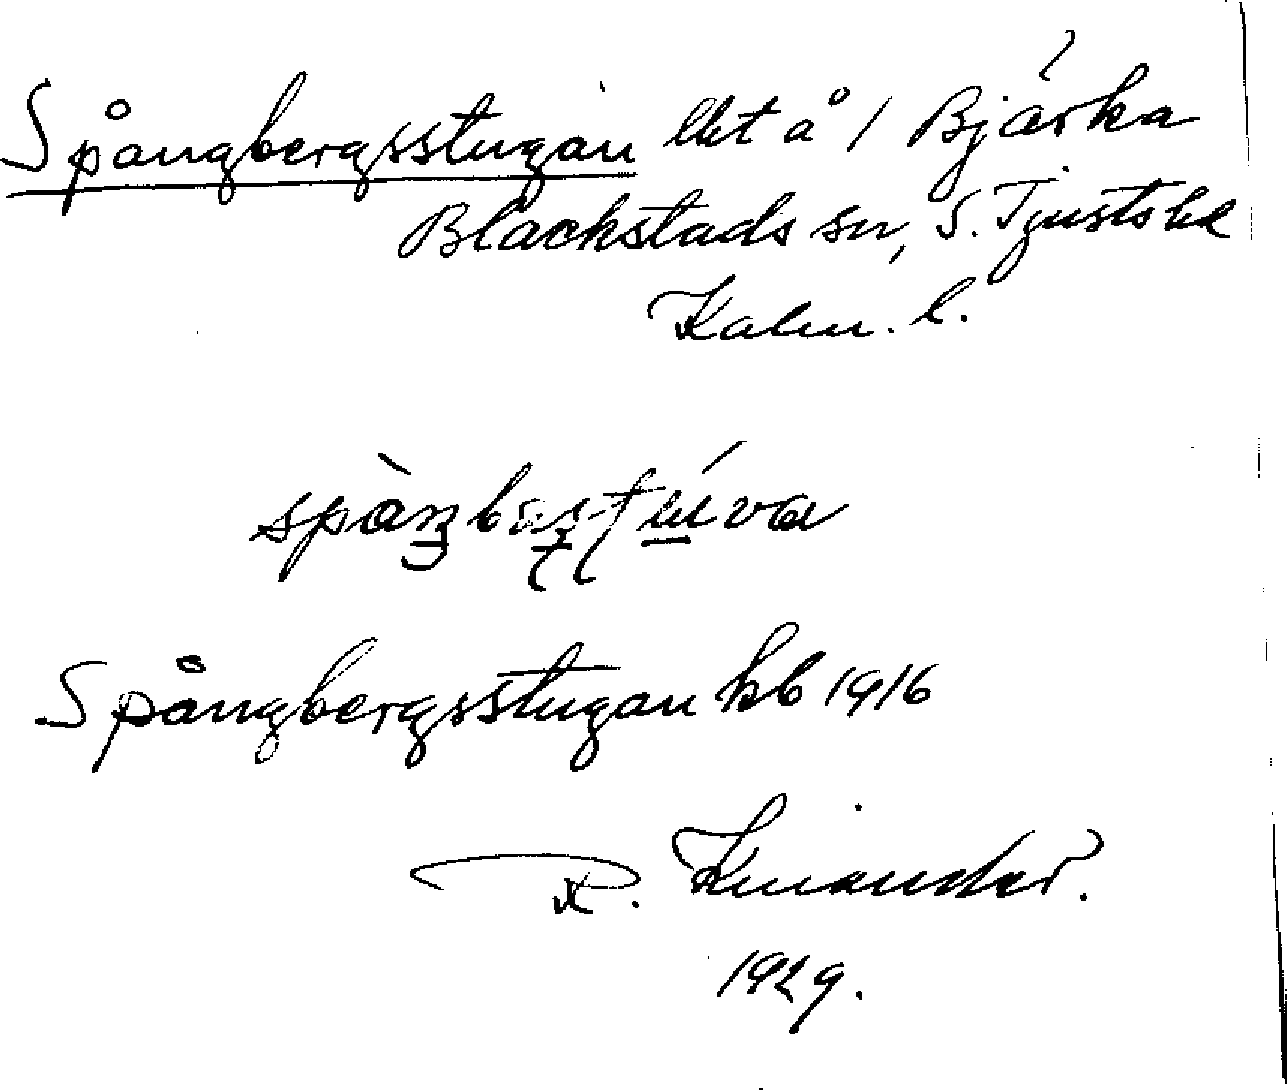 Spångbergsstugan lht å / Bjärka
Blackstads sn, S. Tjusts hd
Kalm. l.
Spångbergsstugan kb 1916
R. Kinander.
1929.